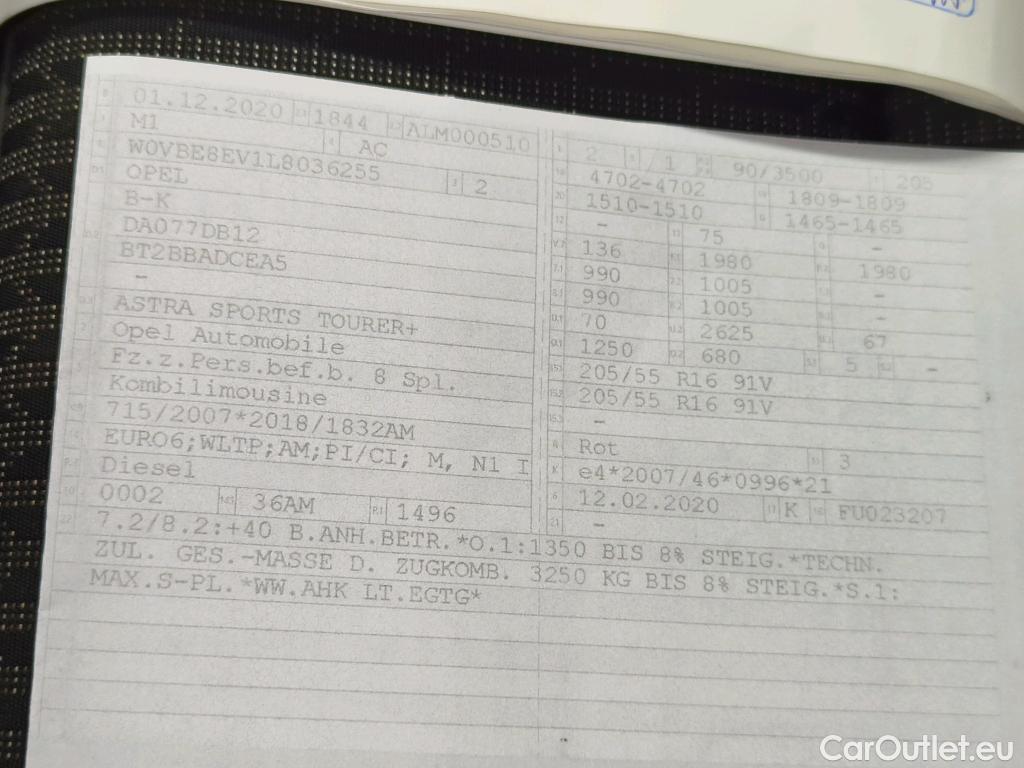 01.12.2020 1844 ALM000510
M1 AC
W0VBE8EV1L8036255 2
OPEL
B-K
DA077DB12
BT2BBADCEA5
-
ASTRA SPORTS TOURER+
Opel Automobile
Fz.z.Pers.bef.b. 8 Spl.
Kombilimousine
715/2007*2018/1832AM
EURO6;WLTP;AM;PI/CI; M, N1 I
Diesel
0002 36AM 1496
2 /1 90/3500 205
4702-4702 1809-1809
1510-1510 1465-1465
- 75 -
136 1980 1980
990 1005 -
990 1005 -
70 2625 67
1250 680 5 -
205/55 R16 91V
205/55 R16 91V
-
Rot 3
e4*2007/46*0996*21
12.02.2020 K FU023207
-
7.2/8.2:+40 B.ANH.BETR.*O.1:1350 BIS 8% STEIG.*TECHN.
ZUL. GES.-MASSE D. ZUGKOMB. 3250 KG BIS 8% STEIG.*S.1:
MAX.S-PL.*WW.AHK LT.EGTG*
CarOutlet.eu